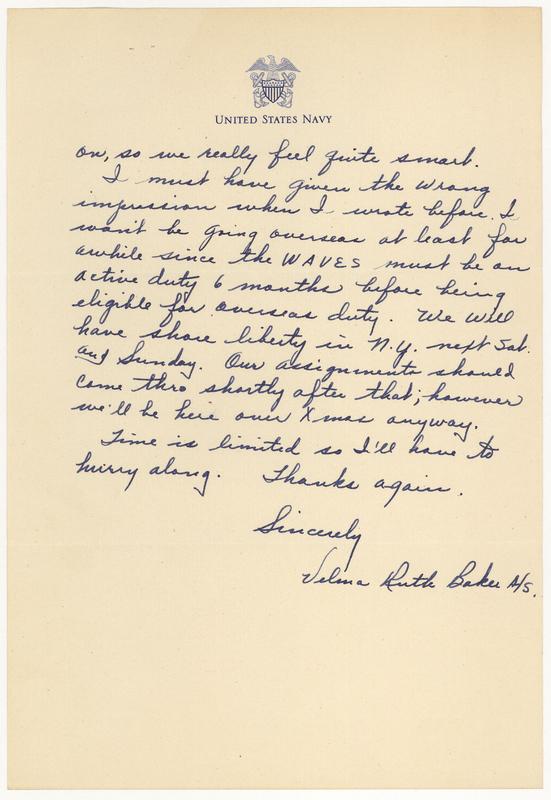 UNITED STATES NAVY
on, so we really feel quite smart.
I must have given the wrong
impression when I wrote before. I
won't be going overseas at least for
awhile since the WAVES must be on
active duty 6 months before being
eligible for overseas duty. We will
have shore liberty in N.Y. next Sat.
and Sunday. Our assignments should
come thro shortly after that; however
we'll be here over Xmas anyway.
Time is limited so I'll have to
hurry along. Thanks again.
Sincerely
Velma Ruth Baker A/S.